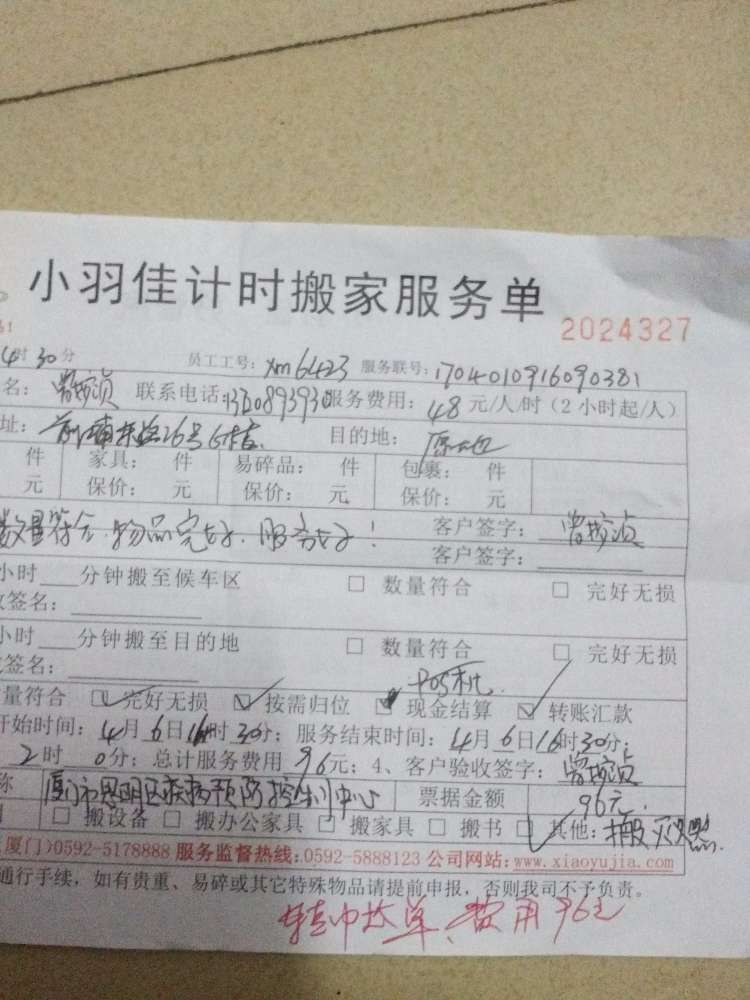 小羽佳计时搬家服务单
2024327
4时30分 员工工号: xm6423 服务联号: 1704010916090381
名: 联系电话: 服务费用: 48元/人/时(2小时起/人)
址: 前埔东路26号 目的地: 原地
件 家具: 件 易碎品: 件 包裹: 件
元 保价: 元 保价: 元 保价: 元
数量符合.物品完好.服务好! 客户签字:
客户签字:
小时 分钟搬至候车区 □ 数量符合 □ 完好无损
签名:
小时 分钟搬至目的地 □ 数量符合 □ 完好无损
签名: POS机.
量符合 ☑ 完好无损 ☑ 按需归位 现金结算 ☑ 转账汇款
开始时间: 4月6日 时30分; 服务结束时间: 4月6日16时30分;
2时0分; 总计服务费用96元; 4、客户验收签字:
称 厦门市思明区疾病预防控制中心 票据金额 96元.
□ 搬设备 □ 搬办公家具 □ 搬家具 □ 搬书 ☑ 其他: 搬灭火器.
厦门)0592-5178888 服务监督热线:0592-5888123 公司网站:www.xiaoyujia.com
通行手续, 如有贵重、易碎或其它特殊物品请提前申报, 否则我司不予负责。
单、费用96元